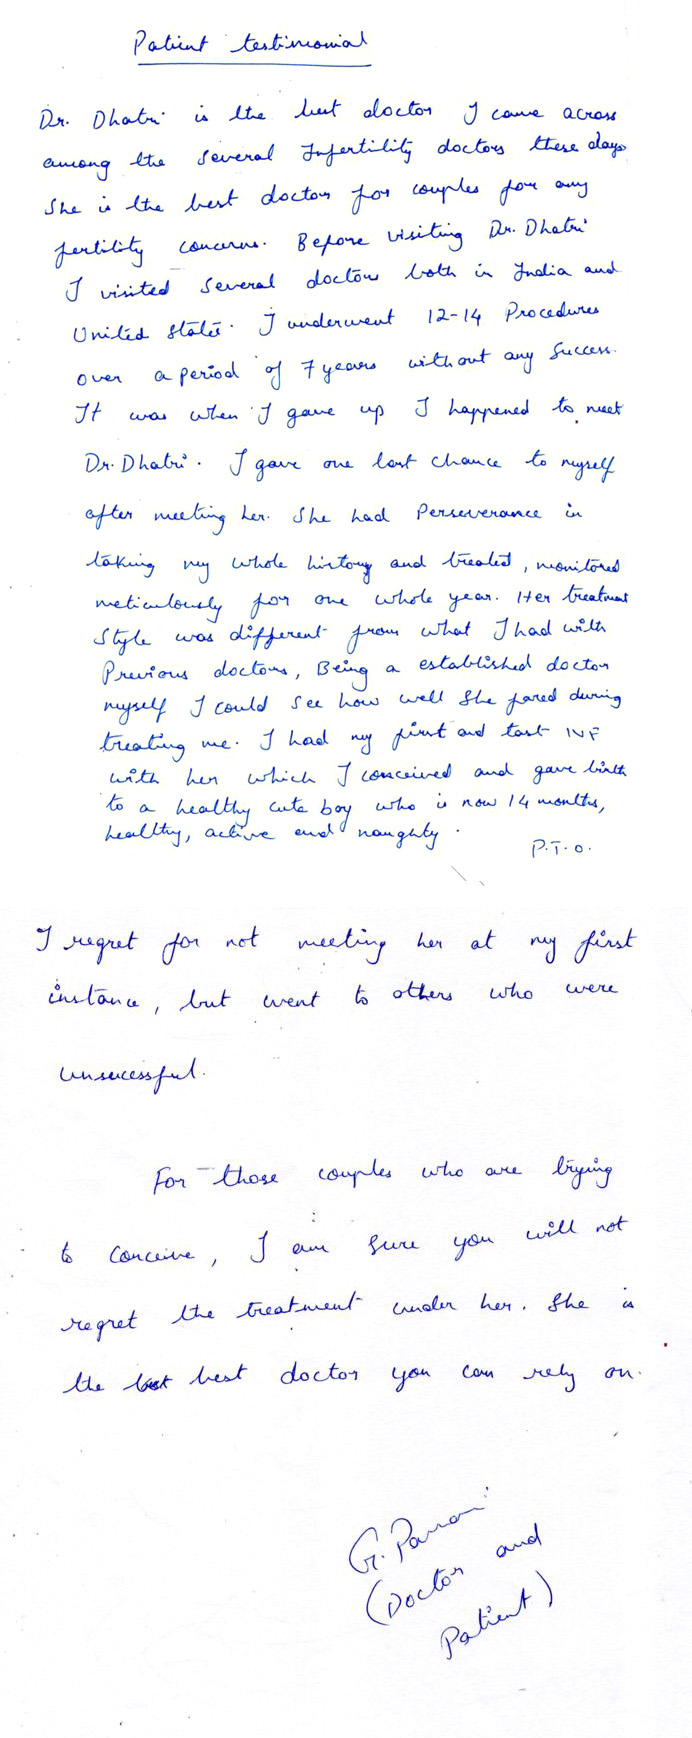 Patient testimonial
Dr. Dhatri is the best doctor I came across
among the several Infertility doctors these days
She is the best doctor for couples for any
fertility concerns. Before visiting Dr. Dhatri
I visited several doctors both in India and
United States. I underwent 12-14 Procedures
over a period of 7 years without any success.
It was when I gave up I happened to meet
Dr. Dhatri. I gave one last chance to myself
after meeting her. She had Perseverance in
taking my whole history and treated, monitored
meticulously for one whole year. Her treatment
style was different from what I had with
Previous doctors, Being a established doctor
myself I could see how well she fared during
treating me. I had my first and last IVF
with her which I conceived and gave birth
to a healthy cute boy who is now 14 months,
healthy, active and naughty.
P.T.O.
I regret for not meeting her at my first
instance, but went to others who were
unsucessful.
For those couples who are trying
to conceive, I am sure you will not
regret the treatment under her. She is
the best doctor you can rely on.
G.
(Doctor and
Patient)